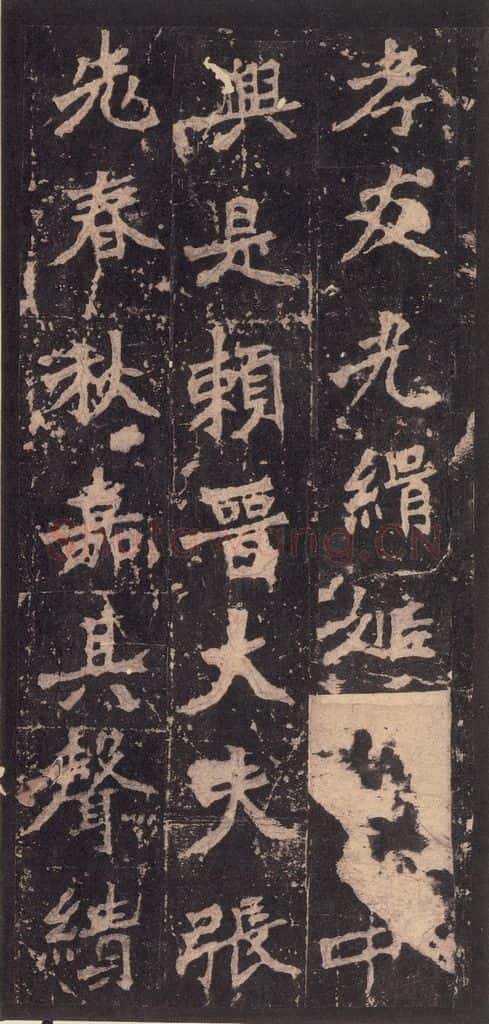 孝友光緝姬中
興是賴晉大夫張
老春秋嘉其聲績
Shufawang.CN